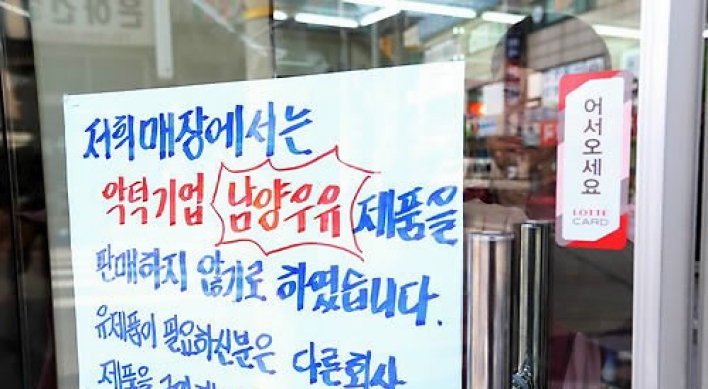 저희 매장에서는
악덕기업 남양우유 제품을
판매하지 않기로 하였습니다.
유제품이 필요하신분은 다른회사
제품을
어서오세요
LOTTE
CARD